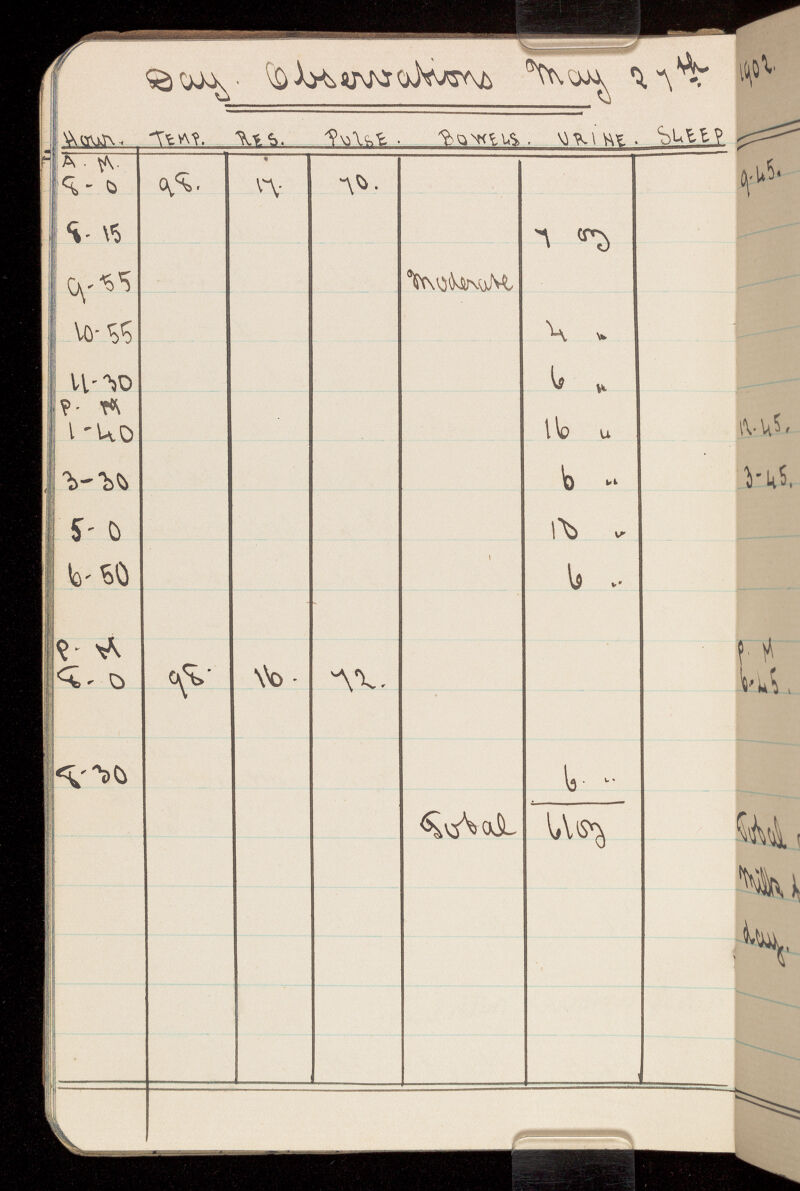 Day. Observations May 27th
Hour. TEMP. RES. PULSE. BOWELS. URINE. SLEEP
A. M.
8-0 98. 17. 70.
8-15 7 oz
9-55 Moderate
10-55 4 "
11-30 6 "
P. M
1-40 16 "
3-30 6 "
5-0 10 "
6-50 6 "
P. M
8-0 98. 16. 72.
8-30 6. "
Total 61oz
1902.
9-45.
12-45.
3-45.
P. M
6-45.
Total
Milk
day.